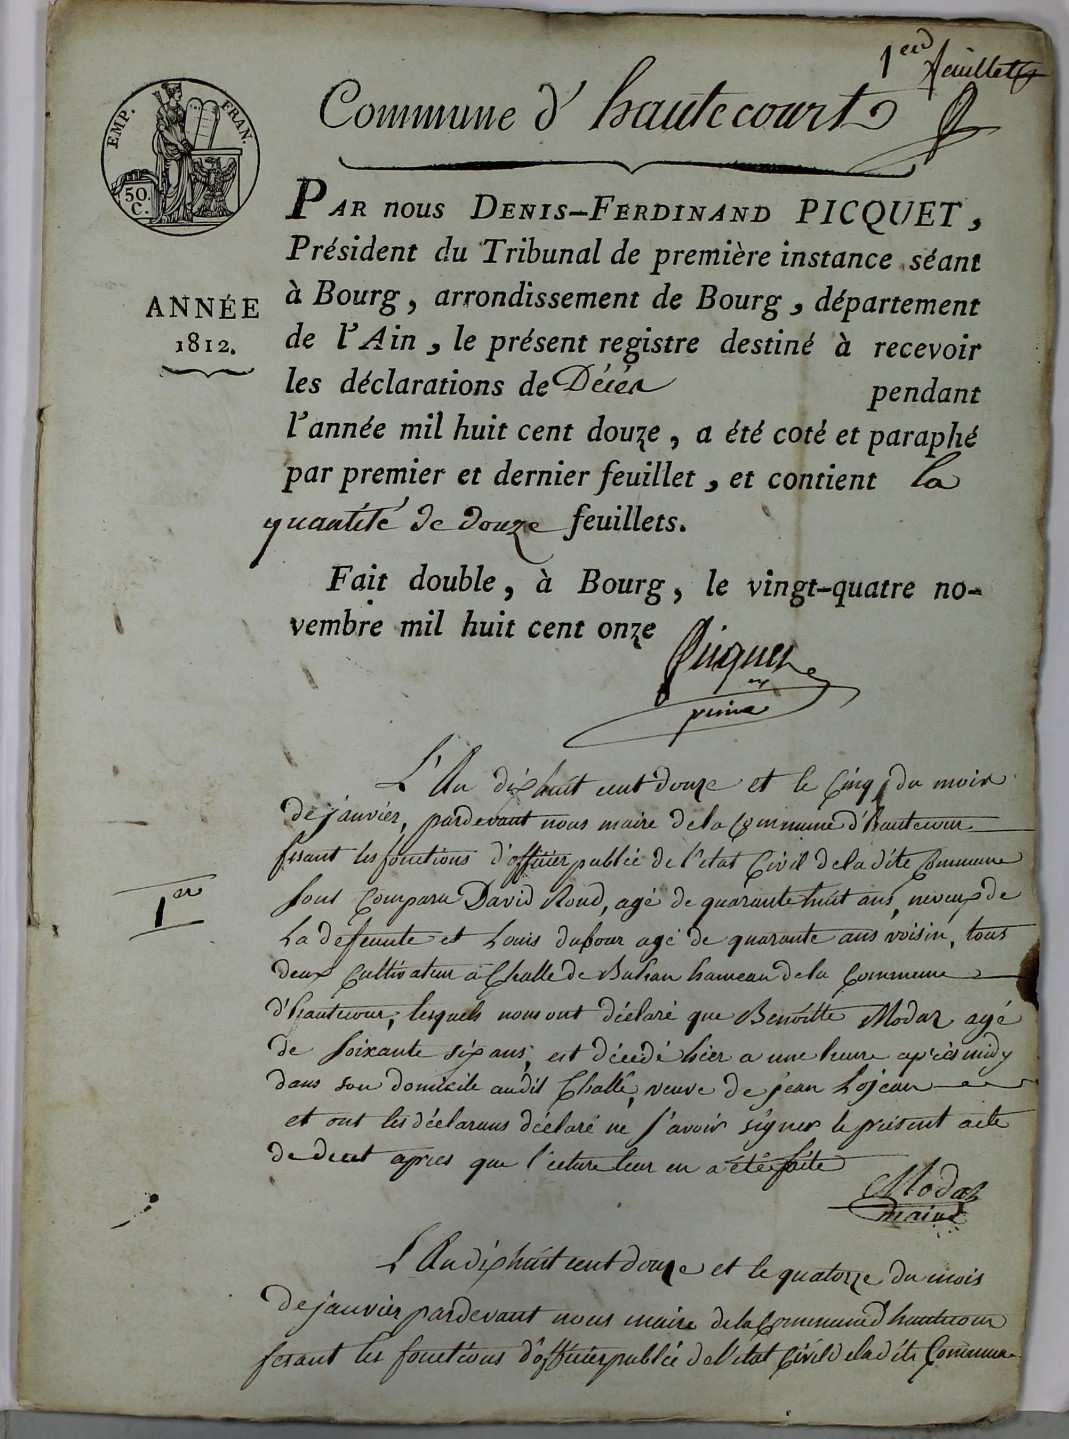 1er feuillet
Commune d' hautecourt
EMP. FRAN.
50.
C.
PAR nous DENIS-FERDINAND PICQUET,
Président du Tribunal de première instance séant
à Bourg, arrondissement de Bourg, département
de l'Ain, le présent registre destiné à recevoir
les déclarations de Décès pendant
l'année mil huit cent douze, a été coté et paraphé
par premier et dernier feuillet, et contient la
quantité de douze feuillets.
ANNÉE
1812.
Fait double, à Bourg, le vingt-quatre no-
vembre mil huit cent onze
Picquet
L'An dixhuit cent douze et le Cinq du mois
de janvier, pardevant nous maire de la Commune d'hautecour
fesant les fonctions d'officier publie de l'état Civil de la dite Commune
1er
sont Comparu David Roud, agé de quarante huit ans, neveux de
La defeunte et Louis dufour agé de quarante ans voisin, tous
deux Cultivateur a Challe de Buhan hameau de la Commune
d'hautecour, lesquels nous ont déclaré que Benoitte Modas agé
de soixante six ans, est décédé hier a une heure après midy
dans son domicile audit Challe, veuve de jean Lojean
et ont les déclarans déclaré ne savoir signer le présent acte
de decet apres que l'ecture leur en a été faite
Modas
maire
L'An dixhuit cent douze et le quatorze du mois
de janvier pardevant nous maire de la Commune d'hautecour
fesant les fonctions d'officier publie de l'état Civil de la dite Commune